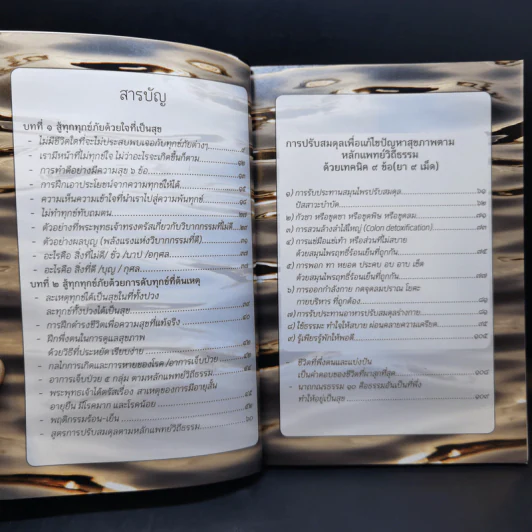 สารบัญ
บทที่ ๑ สู้ทุกทุกข์ภัยด้วยใจที่เป็นสุข
- ไม่มีชีวิตใดที่จะไม่ประสบพบเจอกับทุกข์ภัยต่างๆ
- เรามีหน้าที่ไม่ทุกข์ใจ ไม่ว่าอะไรจะเกิดขึ้นก็ตาม
- การทำดีอย่างมีความสุข ๖ ข้อ
- การฝึกเอาประโยชน์จากความทุกข์ให้ได้
- ความเห็นความเข้าใจที่นำเราไปสู่ความพ้นทุกข์
- ไม่ทำทุกข์ทับถมตน
- ตัวอย่างที่พระพุทธเจ้าทรงตรัสเกี่ยวกับวิบากกรรมที่ไม่ดี
- ตัวอย่างผลบุญ (พลังแรงแห่งวิบากกรรมที่ดี)
- อะไรคือ สิ่งที่ไม่ดี/ ชั่ว /บาป /อกุศล
- อะไรคือ สิ่งที่ดี /บุญ /กุศล
บทที่ ๒ สู้ทุกทุกข์ภัยด้วยการดับทุกข์ที่ต้นเหตุ
- ละเหตุทุกข์ได้เป็นสุขในที่ทั้งปวง
ละทุกข์ทั้งปวงได้เป็นสุข
- การฝึกดำรงชีวิตเพื่อความสุขที่แท้จริง
- ฝึกพึ่งตนในการดูแลสุขภาพ
ด้วยวิธีที่ประหยัดเรียบง่าย
- กลไกการเกิดและการหายของโรค /อาการเจ็บป่วย
- อาการเจ็บป่วย ๕ กลุ่ม ตามหลักแพทย์วิถีธรรม
- พระพุทธเจ้าได้ตรัสเรื่อง สาเหตุของการมีอายุสั้น
อายุยืน มีโรคมาก และโรคน้อย
- พฤติกรรมร้อน-เย็น
- สูตรการปรับสมดุลตามหลักแพทย์วิถีธรรม
การปรับสมดุลเพื่อแก้ไขปัญหาสุขภาพตาม
หลักแพทย์วิถีธรรม
ด้วยเทคนิค ๙ ข้อ(ยา ๙ เม็ด)
๑) การรับประทานสมุนไพรปรับสมดุล
ปัสสาวะบำบัด
๒) กัวซา หรือขูดซา หรือขูดพิษ หรือขูดลม
๓) การสวนล้างลำไส้ใหญ่ (Colon detoxification)
๔) การแช่มือแช่เท้า หรือส่วนที่ไม่สบาย
ด้วยสมุนไพรฤทธิ์ร้อนเย็นที่ถูกกัน
๕) การพอก ทา หยอด ประคบ อบ อาบ เช็ด
ด้วยสมุนไพรฤทธิ์ร้อนเย็นที่ถูกกัน
๖) การออกกำลังกาย กดจุดลมปราณ โยคะ
กายบริหาร ที่ถูกต้อง
๗) การรับประทานอาหารปรับสมดุลร่างกาย
๘) ใช้ธรรมะ ทำใจให้สบาย ผ่อนคลายความเครียด
๙) รู้เพียรรู้พักให้พอดี
- ชีวิตที่พึ่งตนและแบ่งปัน
เป็นคำตอบของชีวิตที่ผาสุกที่สุด
- นาถกณธรรม ๑๐ คือธรรมอันเป็นที่พึ่ง
ทำให้อยู่เป็นสุข